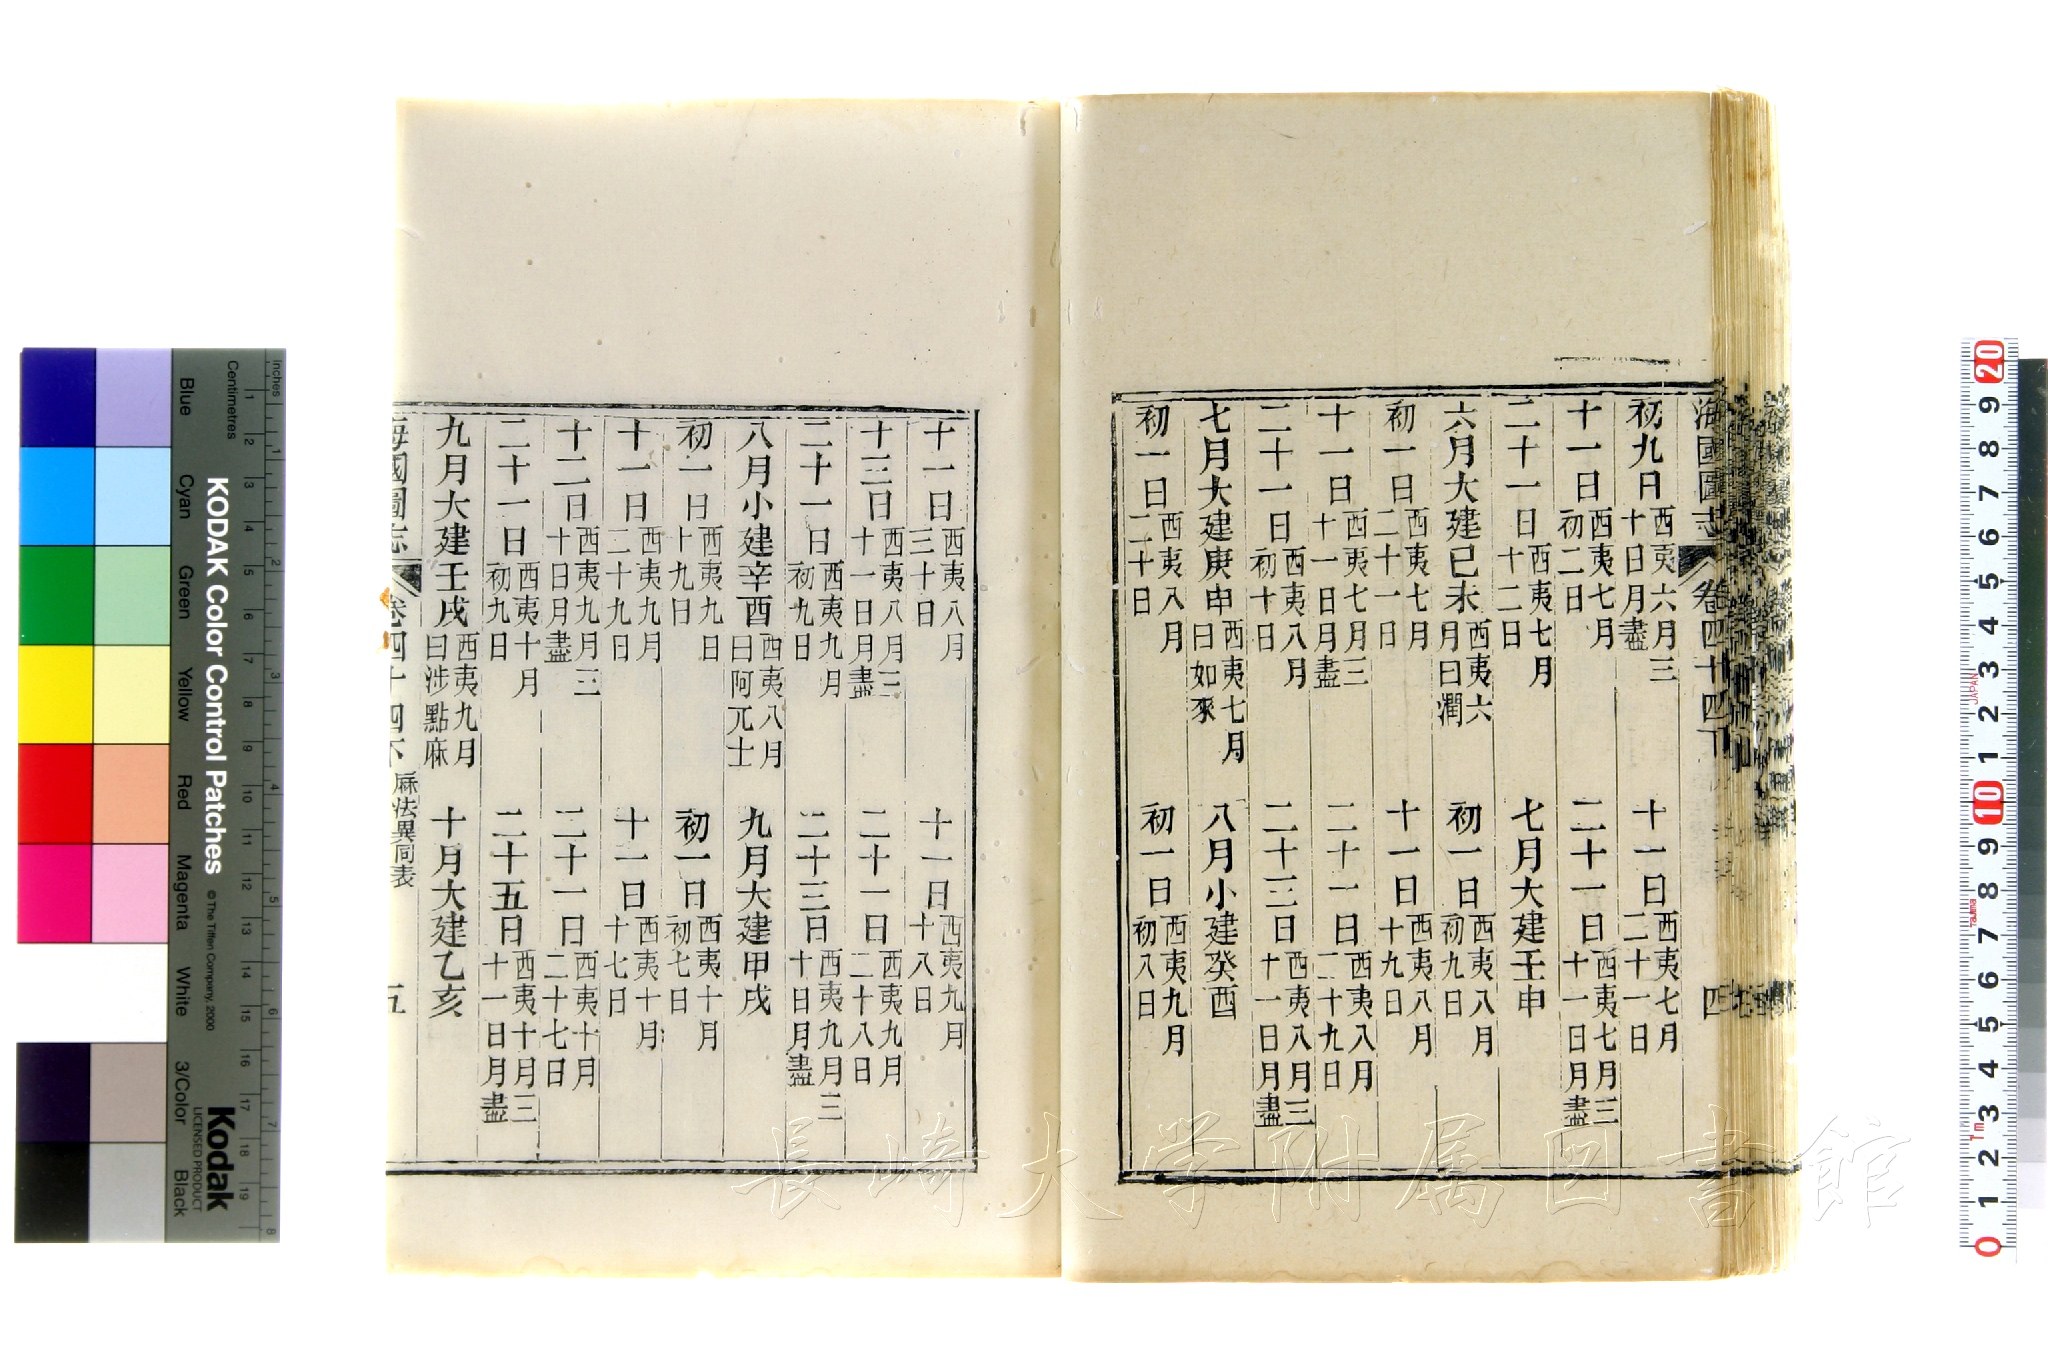 海國圖志 卷四十四下 四
初九日西夷六月三十日月盡 十一日西夷七月二十一日
十一日西夷七月初二日 二十一日西夷七月三十一日月盡
二十一日西夷七月十二日 七月大建壬申
六月大建已未西夷六月曰潤 初一日西夷八月初九日
初一日西夷七月二十一日 十一日西夷八月十九日
十一日西夷七月三十一日月盡 二十一日西夷八月二十九日
二十一日西夷八月初十日 二十三日西夷八月三十一日月盡
七月大建庚申西夷七月曰如來 八月小建癸酉
初一日西夷八月二十日 初一日西夷九月初八日
十一日西夷八月三十日 十一日西夷九月十八日
十三日西夷八月三十一日月盡 二十一日西夷九月二十八日
二十一日西夷九月初九日 二十三日西夷九月三十日月盡
八月小建辛酉西夷八月曰阿兀士 九月大建甲戌
初一日西夷九日十九日 初一日西夷十月初七日
十一日西夷九月二十九日 十一日西夷十月十七日
十二日西夷九月三十日月盡 二十一日西夷十月二十七日
二十一日西夷十月初九日 二十五日西夷十月三十一日月盡
九月大建壬戌西夷九月曰涉點麻 十月大建乙亥
海國圖志 卷四十四下 厤法異同表 五
長崎大学附属図書館
KODAK Color Control Patches
© The Tiffen Company, 2000
Kodak
LICENSED PRODUCT
Inches 1 2 3 4 5 6 7 8
Centimetres 1 2 3 4 5 6 7 8 9 10 11 12 13 14 15 16 17 18 19
Blue Cyan Green Yellow Red Magenta White 3/Color Black
0 1 2 3 4 5 6 7 8 9 10 1 2 3 4 5 6 7 8 9 20
JAPAN